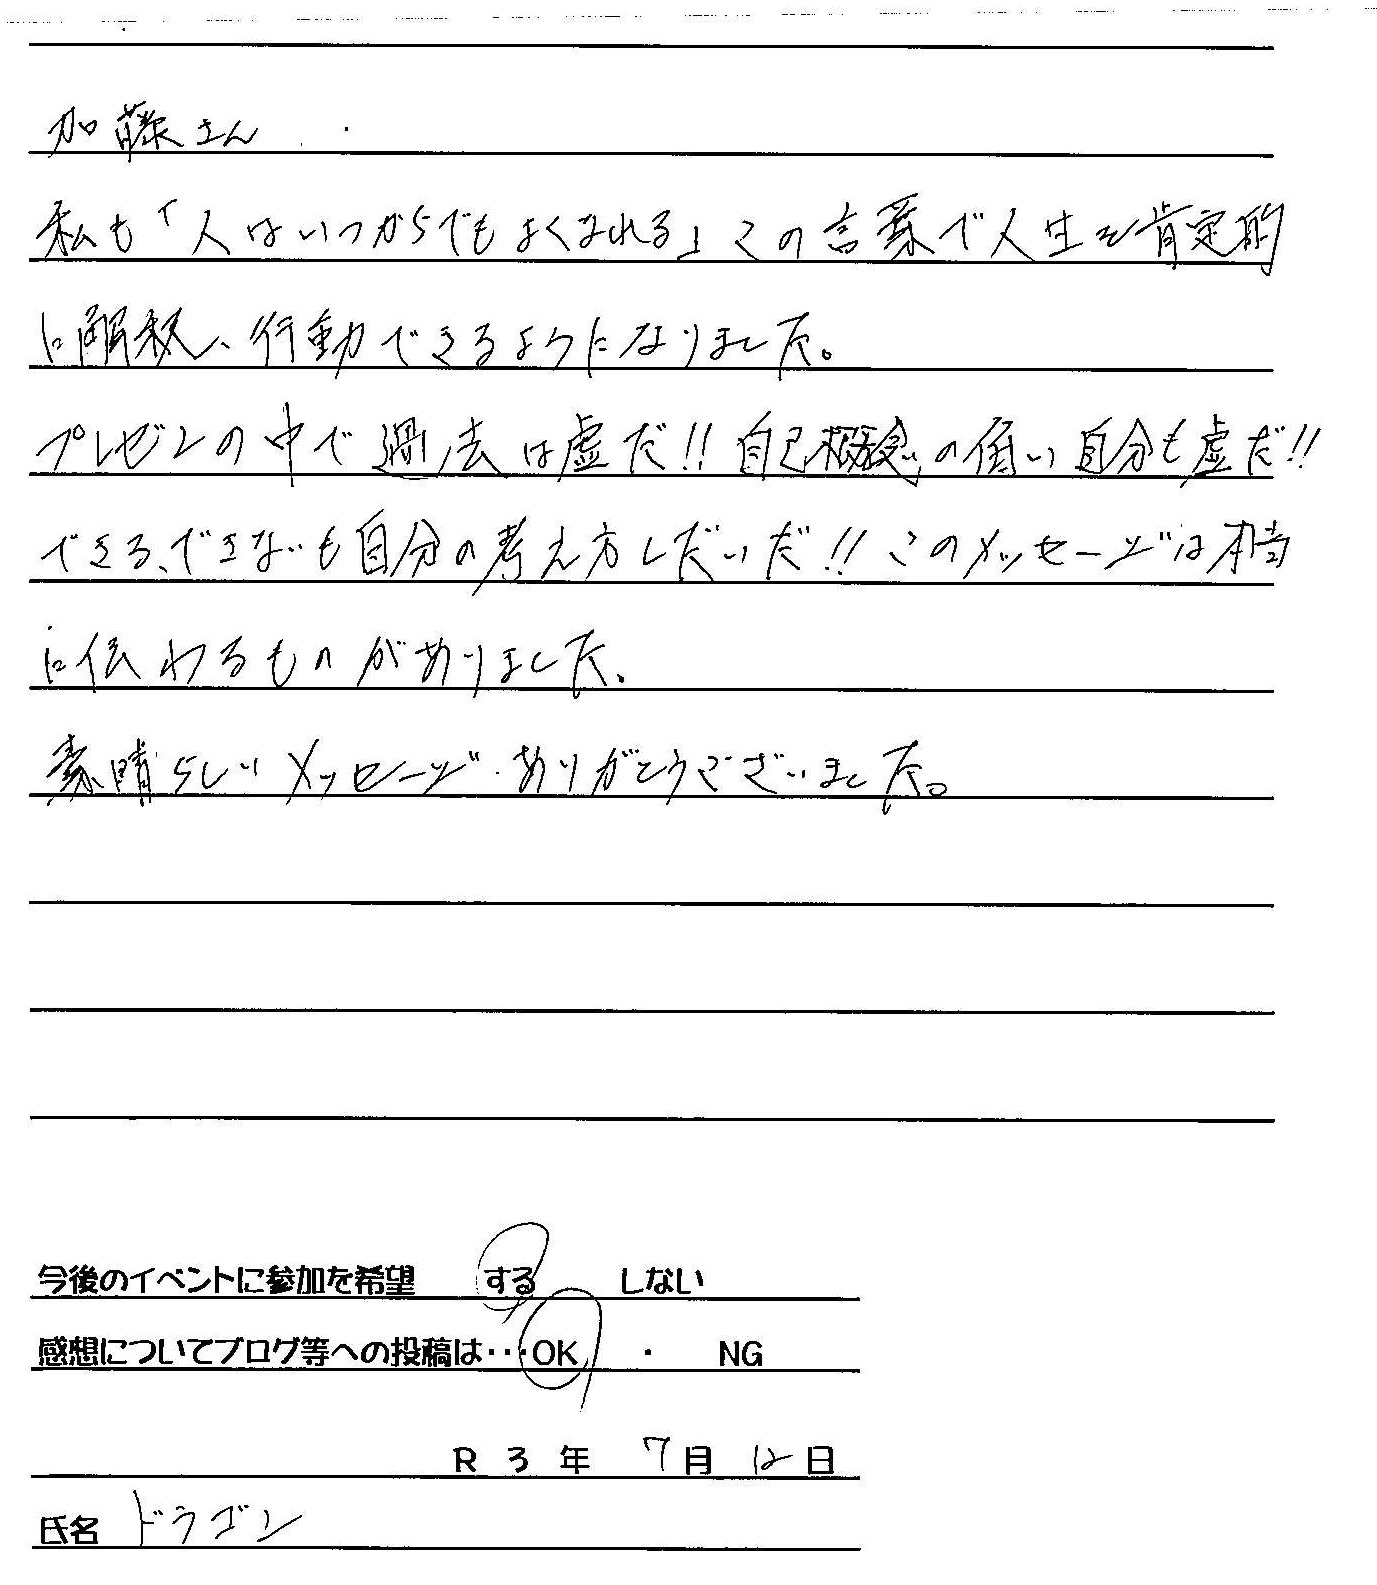 加藤さん
私も「人はいつからでもよくなれる」この言葉で人生を肯定的
に解釈、行動できるようになりました。
プレゼンの中で過去は虚だ!!自己概念の低い自分も虚だ!!
できる、できないも自分の考え方しだいだ!!このメッセージは本当
に伝わるものがありました。
素晴らしいメッセージ、ありがとうございました。
今後のイベントに参加を希望 する しない
感想についてブログ等への投稿は…OK ・ NG
R 3 年 7月 12日
氏名 ドラゴン